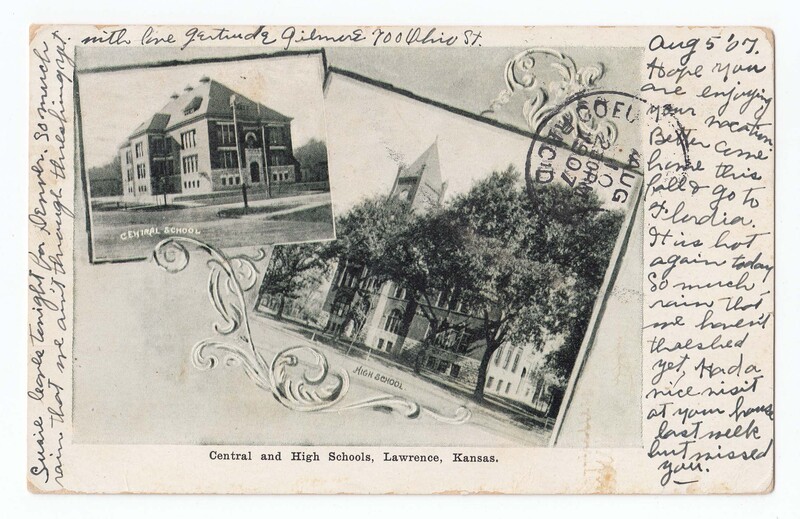 with love Gertrude Gilmore 700 Ohio St.
Aug 5 '07.
Hope you
are enjoying
your vacation.
Better come
home this
fall & go to
Flordia.
It is hot
again today
So much
rain that
we haven't
threshed
yet, Had a
nice visit
at your house
last week
but missed
you.
Susie leaves tonight for Denver. So much
rain that we ain't through threshing yet.
COEU
AUG
1907
CENTRAL SCHOOL
HIGH SCHOOL
Central and High Schools, Lawrence, Kansas.